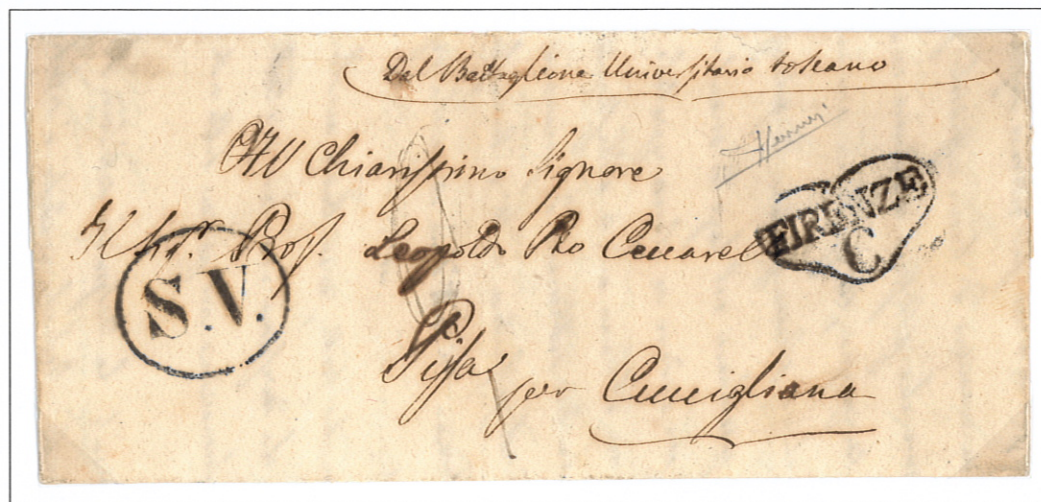 Dal Battaglione Universitario toscano
All Chiarissimo Signore
Il Sigr. Prof. Leopoldo Pio Ceccarel
FIRENZE
C
S.V.
Pisa
per Cucigliana